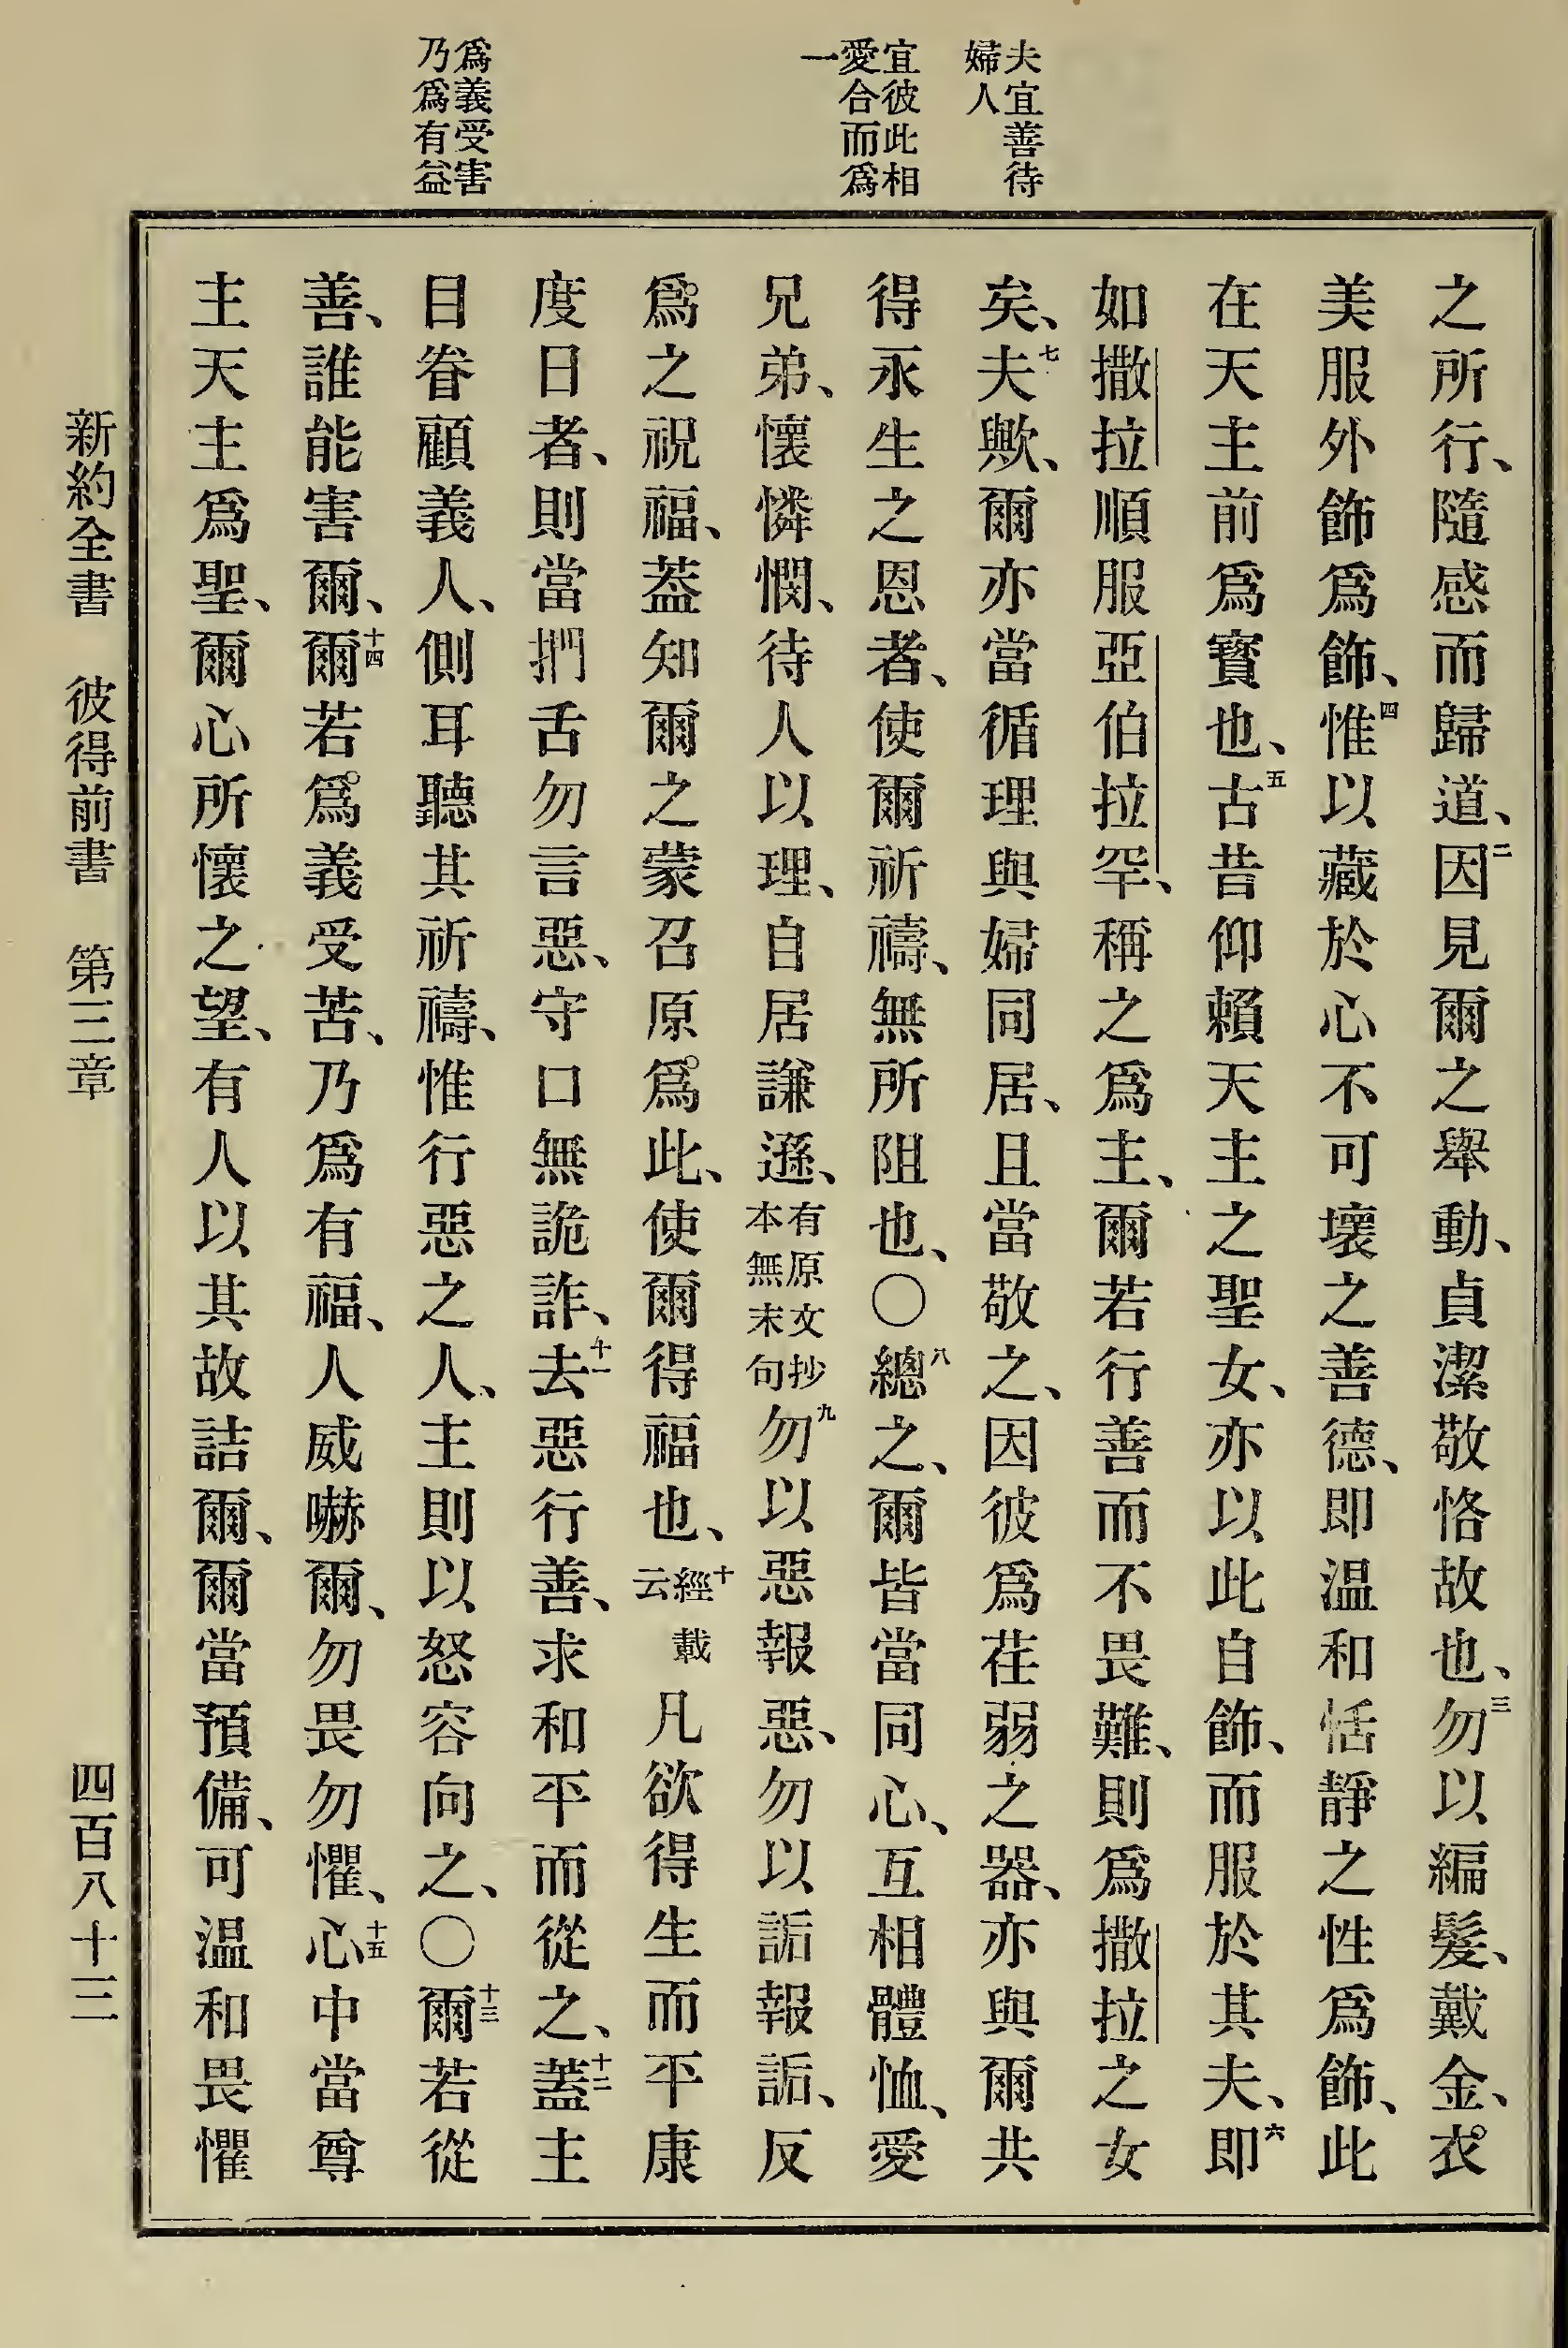 夫宜善待
婦人
宜彼此相
愛合而爲
一
爲義受害
乃爲有益
之所行、隨感而歸道、二因見爾之舉動、貞潔敬恪故也、三勿以編髮、戴金、衣
美服外飾爲飾、四惟以藏於心不可壞之善德、即温和恬靜之性爲飾、此
在天主前爲寶也、五古昔仰賴天主之聖女、亦以此自飾、而服於其夫、六即
如撒拉順服亞伯拉罕、稱之爲主、爾若行善而不畏難、則爲撒拉之女
矣、七夫歟、爾亦當循理與婦同居、且當敬之、因彼爲荏弱之器、亦與爾共
得永生之恩者、使爾祈禱、無所阻也、〇八總之、爾皆當同心、互相體恤、愛
兄弟、懷憐憫、待人以理、自居謙遜、有原文抄本無末句九勿以惡報惡、勿以詬報詬、反
爲之祝福、葢知爾之蒙召原爲此、使爾得福也、十經載云凡欲得生而平康
度日者、則當捫舌勿言惡、守口無詭詐、十一去惡行善、求和平而從之、十二蓋主
目眷顧義人、側耳聽其祈禱、惟行惡之人、主則以怒容向之、〇十三爾若從
善、誰能害爾、十四爾若爲義受苦、乃爲有福、人威嚇爾、勿畏勿懼、十五心中當尊
主天主爲聖、爾心所懷之望、有人以其故詰爾、爾當預備、可温和畏懼
新約全書 彼得前書 第三章 四百八十三